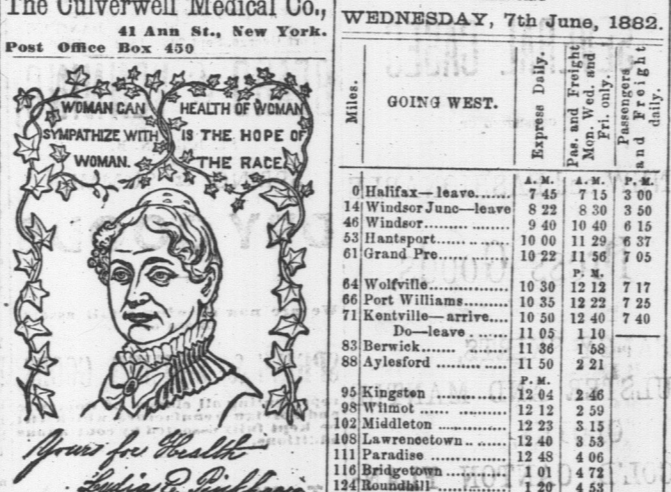 The Culverwell Medical Co.,
41 Ann St., New York.
Post Office Box 450
WOMAN CAN
SYMPATHIZE WITH
WOMAN.
HEALTH OF WOMAN
IS THE HOPE OF
THE RACE
Yours for Health
Lydia E. Pinkham
WEDNESDAY, 7th June, 1882.
Miles. GOING WEST. Express Daily. Pas. and Freight Mon. Wed. and Fri. only. Passengers and Freight daily.
A. M. A. M. P. M.
0 Halifax—leave....... 7 45 7 15 3 00
14 Windsor Junc—leave 8 22 8 30 3 50
46 Windsor............... 9 40 10 40 6 15
53 Hantsport............ 10 00 11 29 6 37
61 Grand Pre............ 10 22 11 56 7 05
P. M.
64 Wolfville............ 10 30 12 12 7 17
66 Port Williams......... 10 35 12 22 7 25
71 Kentville—arrive.... 10 50 12 40 7 40
Do—leave .... 11 05 1 10
83 Berwick............... 11 36 1 58
88 Aylesford............ 11 50 2 21
P. M.
95 Kingston ............ 12 04 2 46
98 Wilmot ............... 12 12 2 59
102 Middleton ............ 12 23 3 15
108 Lawrencetown.. ...... 12 40 3 53
111 Paradise ............ 12 48 4 06
116 Bridgetown............ 1 01 4 72
124 Roundhill ............ 1 20 4 53